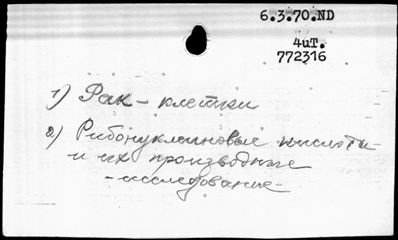 6.3.70.ND
4иТ.
772316
1) Рак – клетки
2) Рибонуклеиновые кислоты –
и их производные
– исследование –